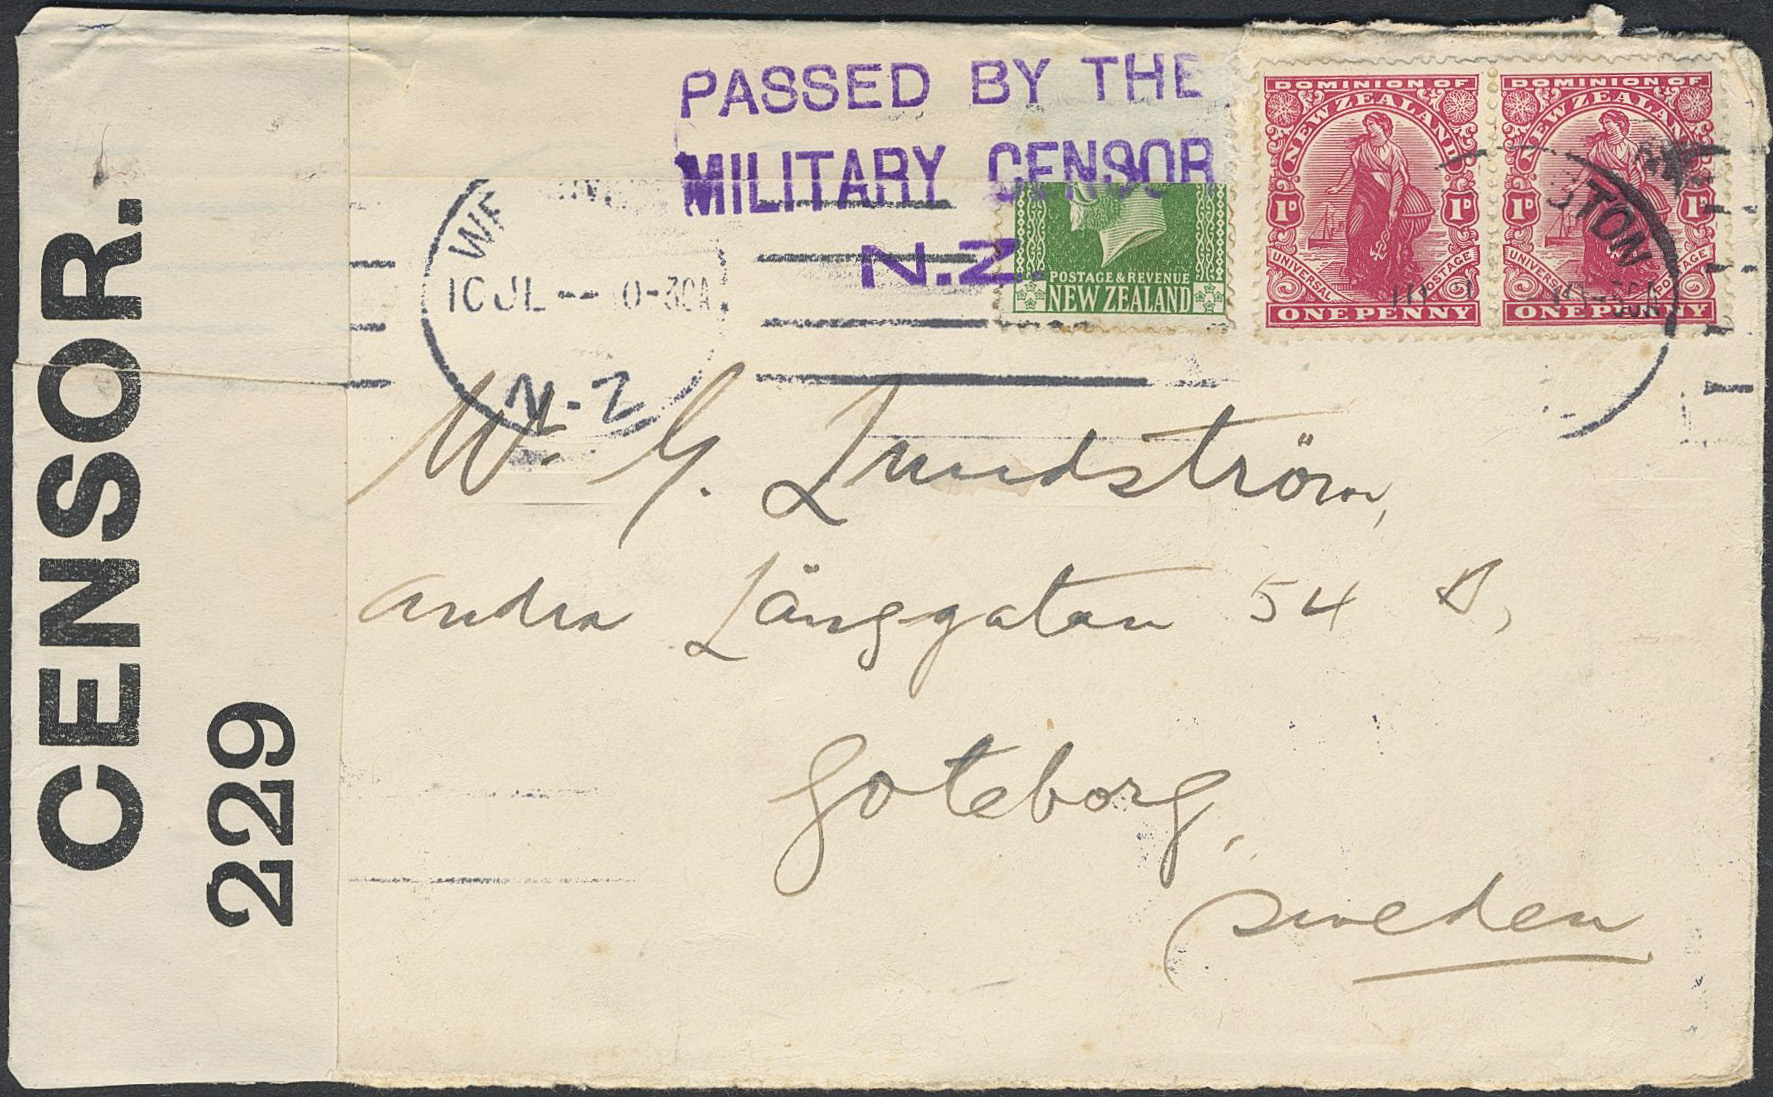 CENSOR.
229
PASSED BY THE
MILITARY CENSOR
N.Z.
10 JL -- 10-30A
N.Z
POSTAGE & REVENUE
NEW ZEALAND
DOMINION OF
NEW ZEALAND
1D 1D
UNIVERSAL POSTAGE
ONE PENNY
DOMINION OF
NEW ZEALAND
1D 1D
UNIVERSAL POSTAGE
ONE PENNY
W. G. Lundström,
Andra Länggatan 54 B,
Goteborg,
Sweden